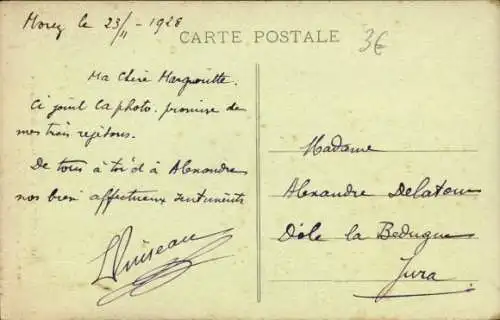 Morez le 23/11 - 1928
CARTE POSTALE
3€
Ma chère Marguerite.
Ci joint la photo promise de
mes trois rejetons.
De tous à toi et à Alexandre
nos bien affectueux sentiments
Madame
Alexandre Delatour
Dôle la Bedugue
Jura